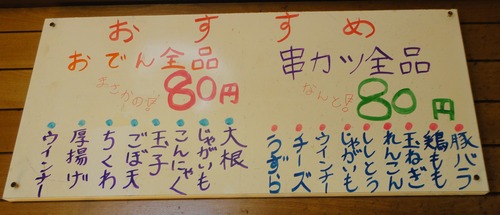 おすすめ
おでん全品
まさかの!
80円
串カツ全品
なんと!
80円
大根
じゃがいも
こんにゃく
玉子
ごぼ天
ちくわ
厚揚げ
ウインナー
豚バラ
鶏もも
玉ねぎ
れんこん
ししとう
じゃがいも
ウインナー
チーズ
うずら